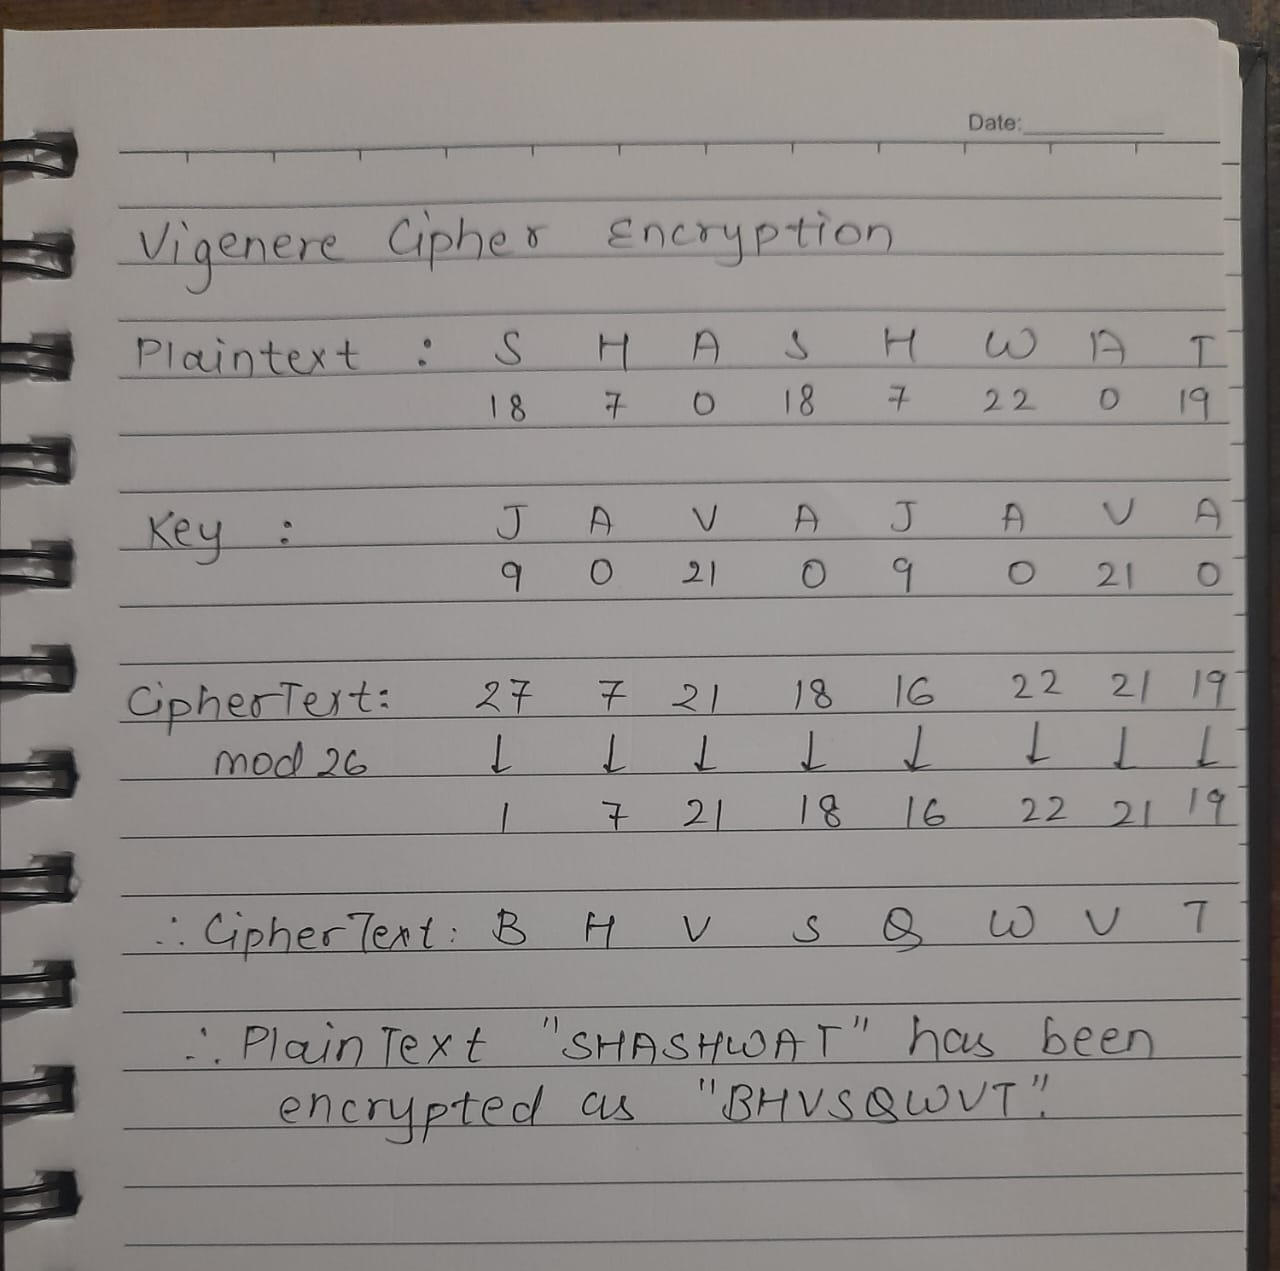 Date:
Vigenere Cipher Encryption
Plaintext : S H A S H W A T
18 7 0 18 7 22 0 19
Key : J A V A J A V A
9 0 21 0 9 0 21 0
CipherText: 27 7 21 18 16 22 21 19
mod 26 ↓ ↓ ↓ ↓ ↓ ↓ ↓ ↓
1 7 21 18 16 22 21 19
∴ CipherText: B H V S Q W V T
∴ PlainText "SHASHWAT" has been
encrypted as "BHVSQWVT".